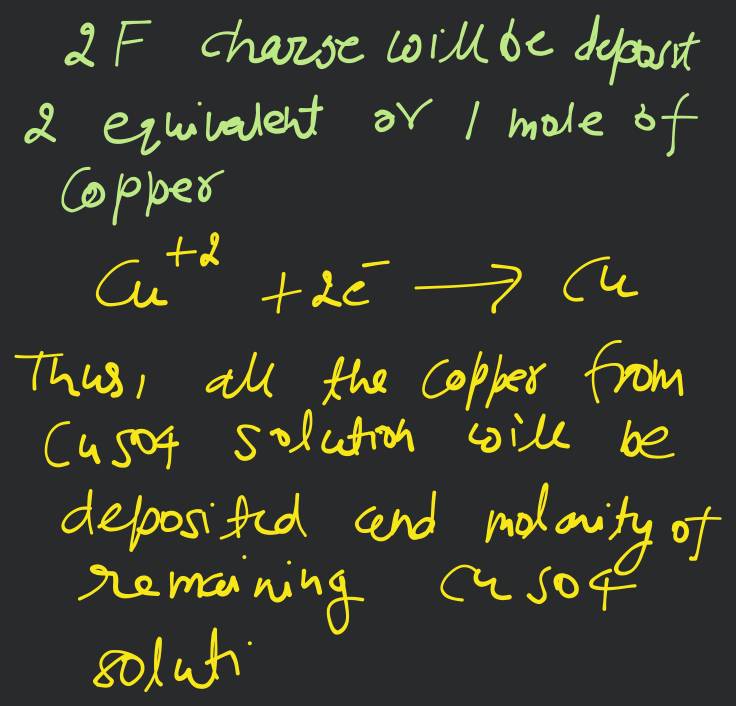 2 F charge will be deposit
2 equivalent or 1 mole of
Copper
Cu+2 + 2e- → Cu
Thus, all the copper from
CuSO4 solution will be
deposited and molarity of
remaining CuSO4
soluti